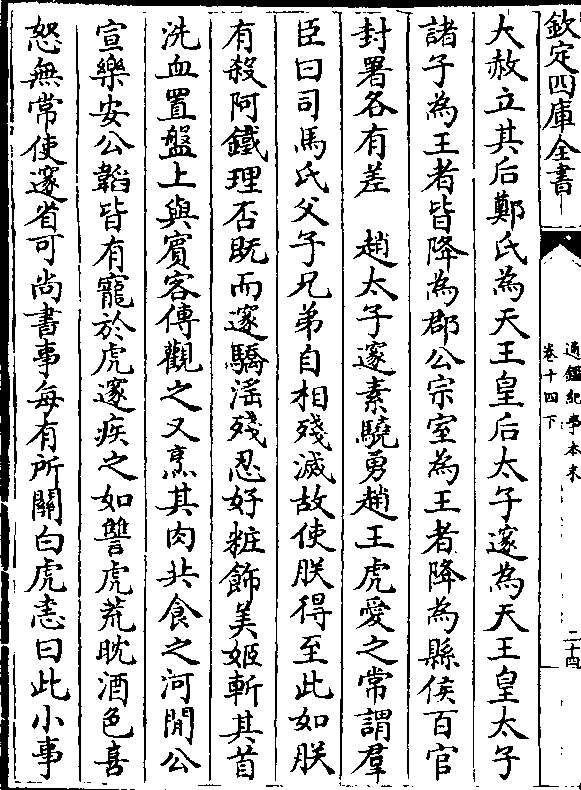 欽定四庫全書
通鑑紀事本末
卷十四下
二十四
大赦立其后鄭氏為天王皇后太子邃為天王皇太子
諸子為王者皆降為郡公宗室為王者降為縣侯百官
封署各有差　趙太子邃素驍勇趙王虎愛之常謂羣
臣曰司馬氏父子兄弟自相殘滅故使朕得至此如朕
有殺阿鐵理否既而邃驕淫殘忍好粧飾美姬斬其首
洗血置盤上與賓客傳觀之又烹其肉共食之河間公
宣樂安公韜皆有寵於虎邃疾之如讐虎荒耽酒色喜
怒無常使邃省可尚書事每有所關白虎恚曰此小事